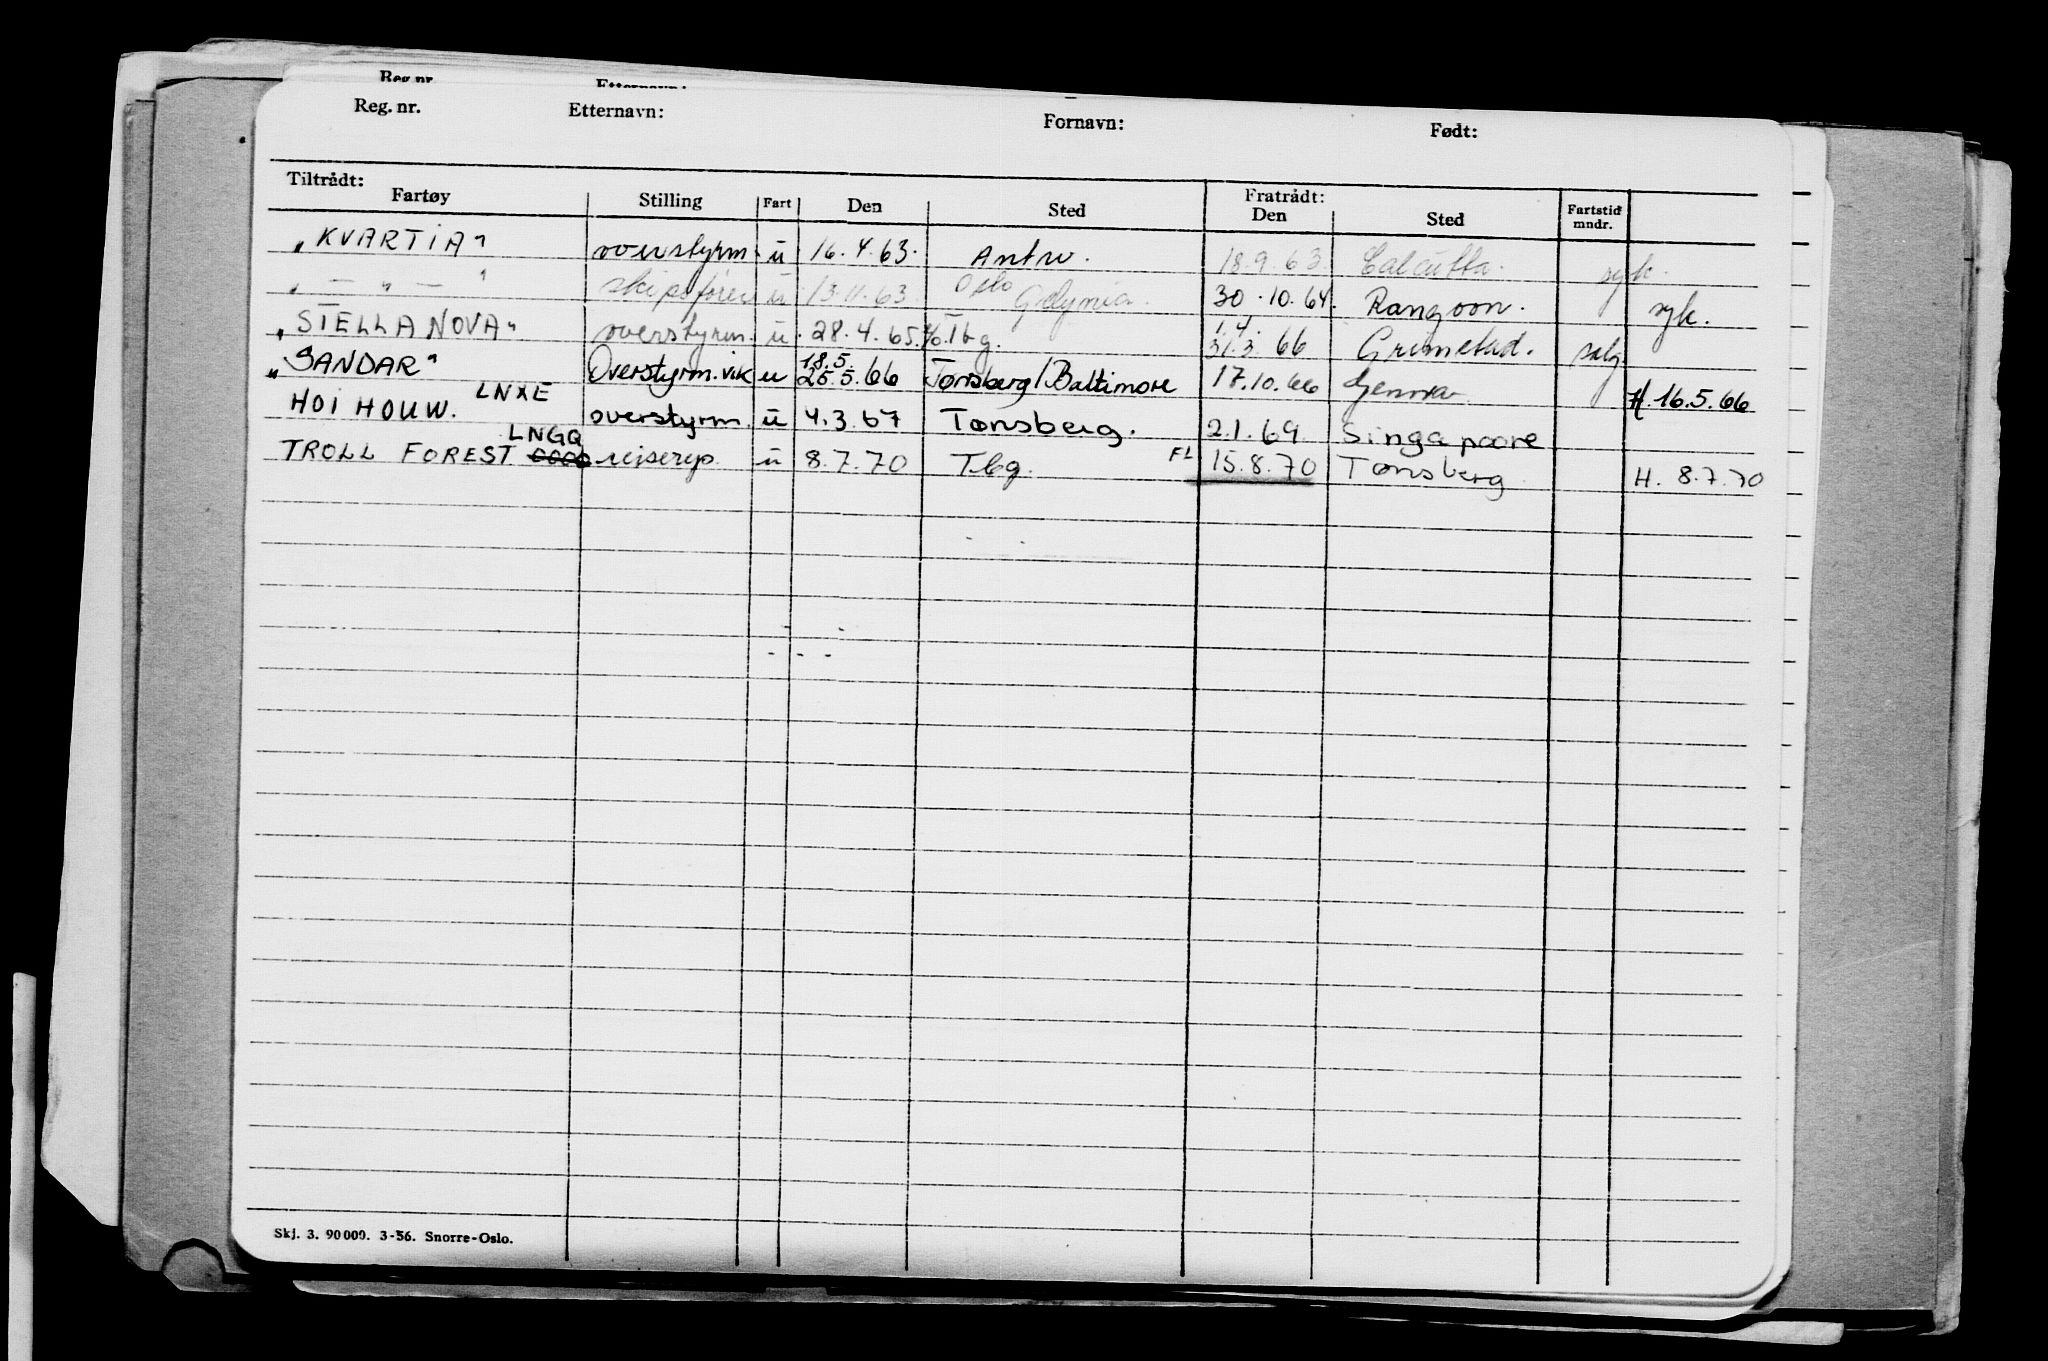 Reg. nr. Etternavn:
Reg. nr. Etternavn: Fornavn: Født:
Tiltrådt: Fratrådt:
Fartøy Stilling Fart Den Sted Den Sted Fartstid mndr.
„KVARTIA" overstyrm. u 16.4.63. Antw. 18.9.63. Calcutta. syk.
„ — „ — " skipsfører u 13.11.63. Oslo Gdynia. 30.10.64. Rangoon. syk.
„STELLA NOVA" overstyrm. u. 28.4.65. Tbg. 1.4. 31.3.66 Grimstad. salg
„SANDAR" Overstyrm. vik u 18.5. 25.5.66 Tønsberg/Baltimore 17.10.66 Genova H. 16.5.66
HOI HOUW. LNXE overstyrm. u 4.3.67 Tønsberg. 2.1.69. Singapoore
TROLL FOREST LNGQ reiserep. u 8.7.70 Tbg. FL 15.8.70 Tønsberg H. 8.7.70
Skj. 3. 90000. 3-56. Snorre-Oslo.